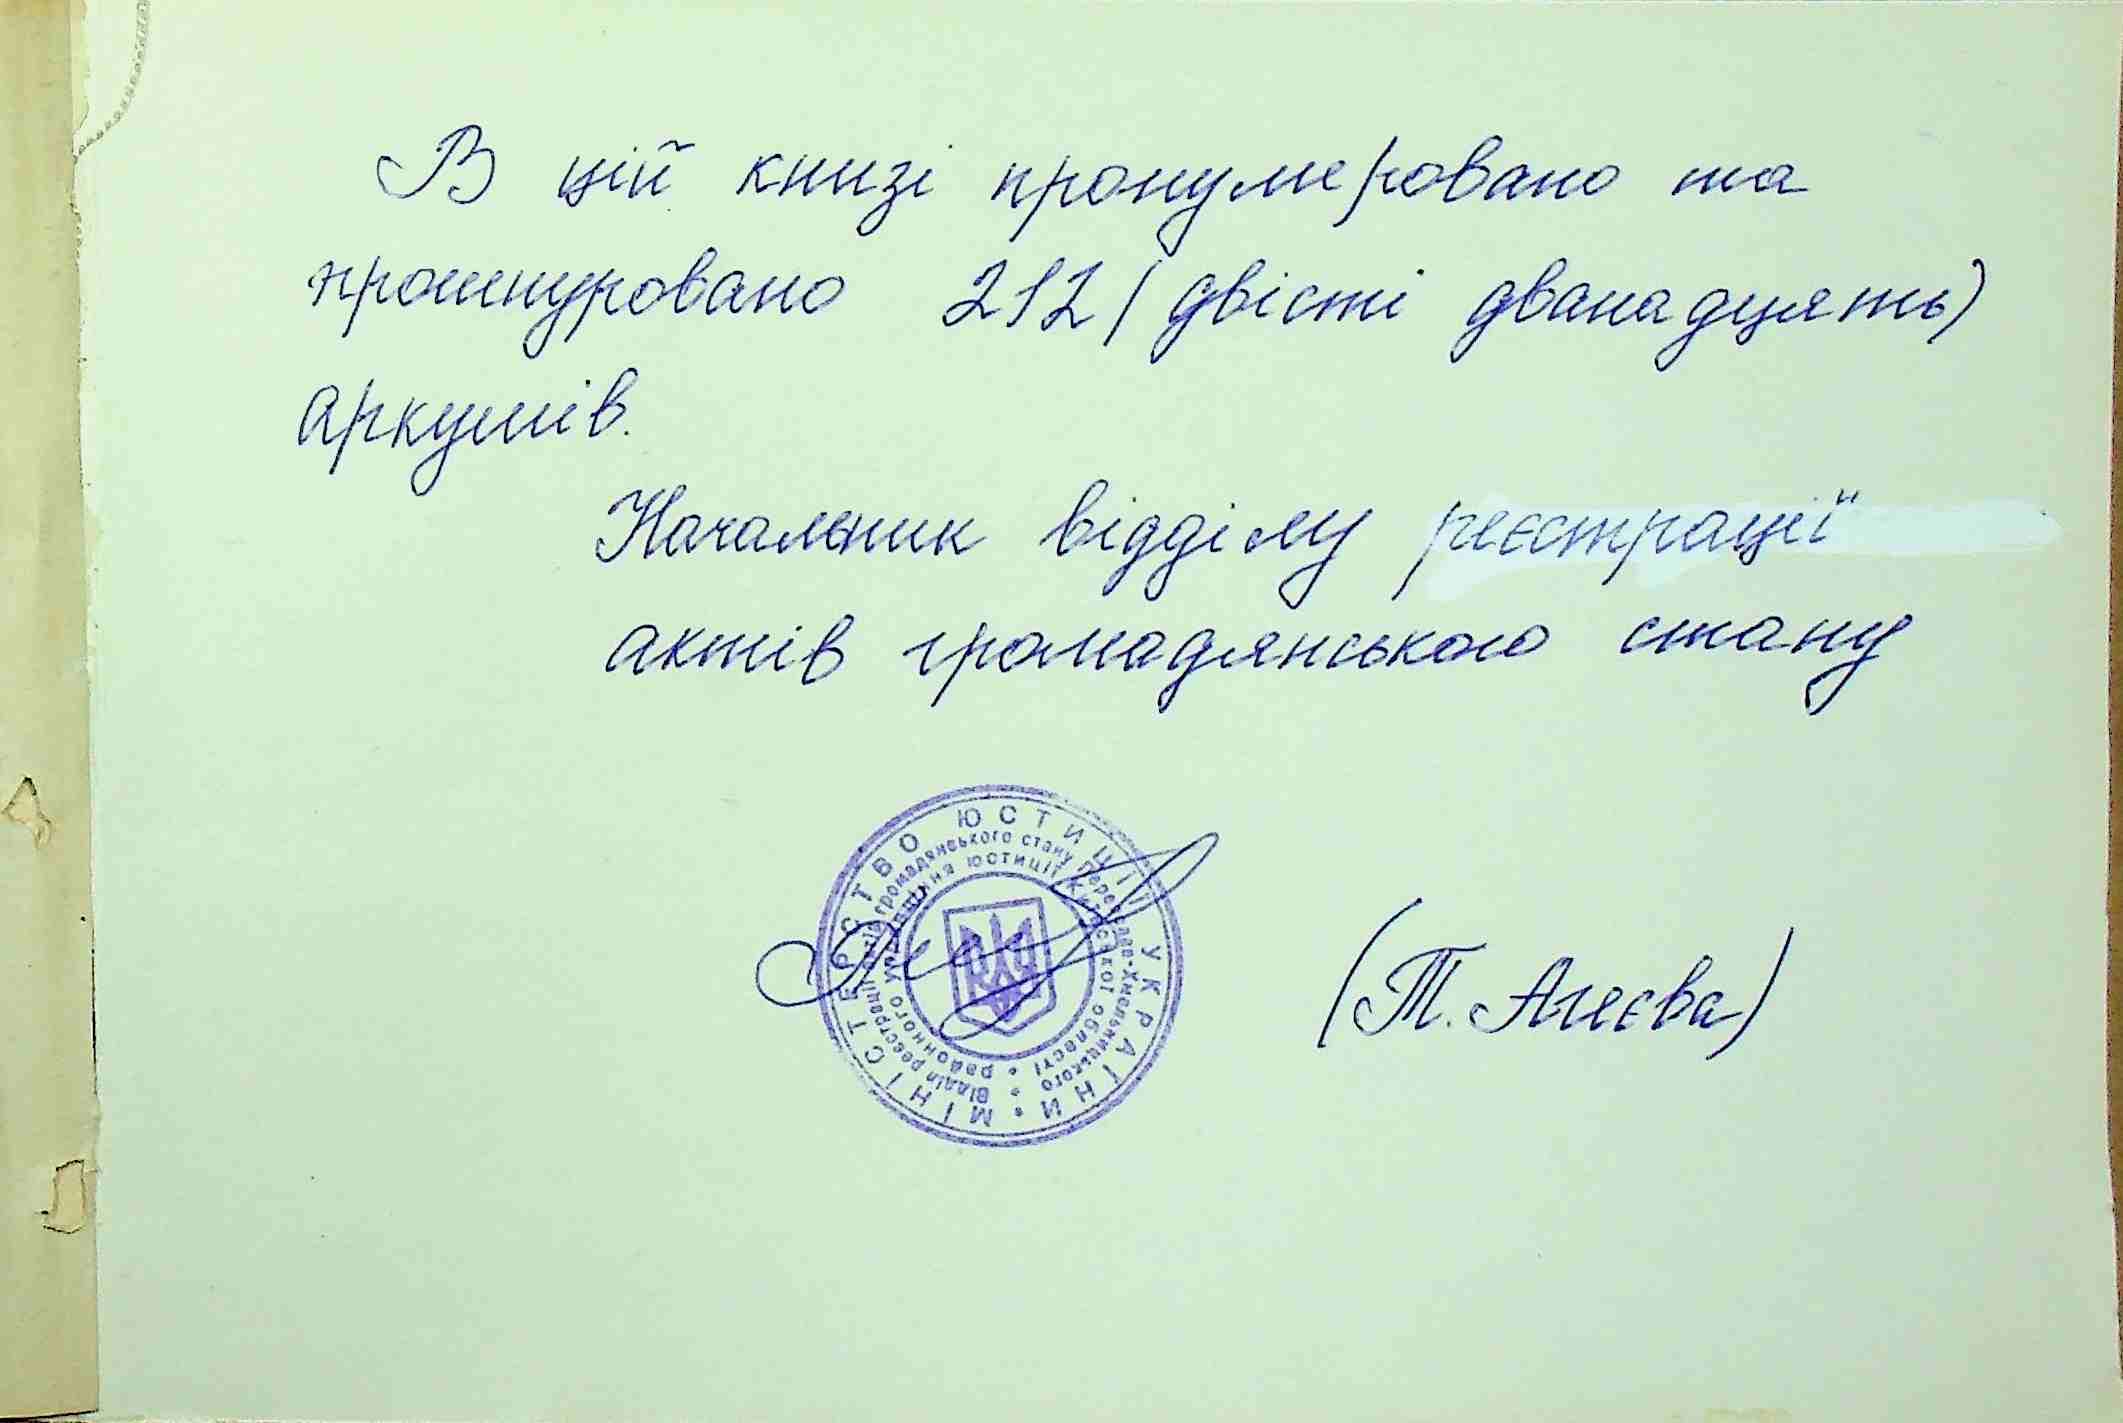 В цій книзі пронумеровано та
прошнуровано 212 (двісті дванадцять)
аркушів.
Начальник відділу реєстрації
актів громадянського стану
МІНІСТЕРСТВО ЮСТИЦІЇ УКРАЇНИ
Відділ реєстрації актів громадянського стану Переяслав-Хмельницького
районного управління юстиції Київської області
(Т. Агеєва)